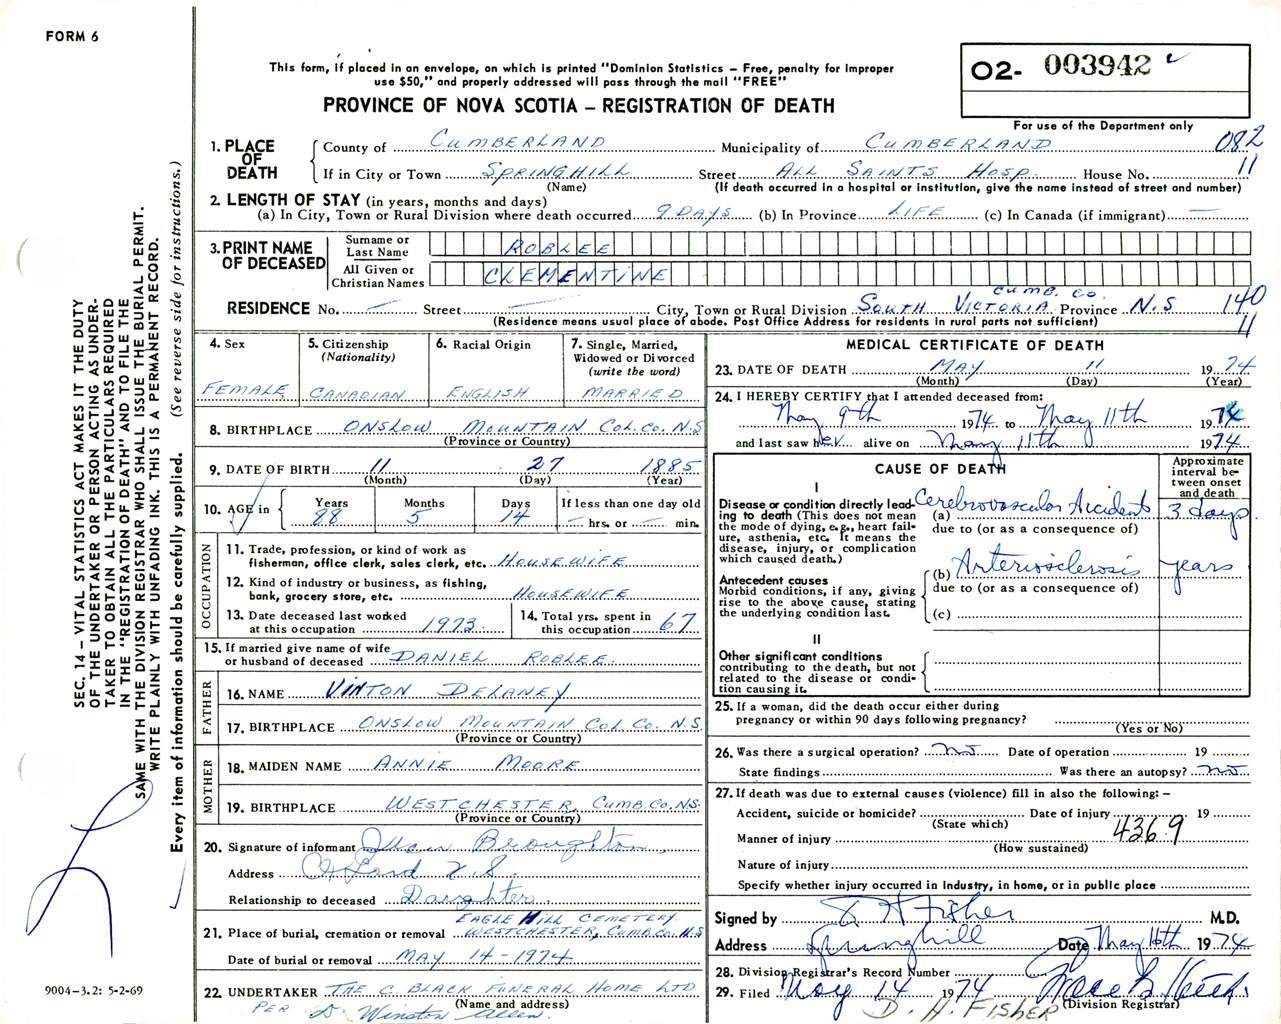 FORM 6
This form, if placed in an envelope, on which is printed "Dominion Statistics – Free, penalty for improper
use $50," and properly addressed will pass through the mail "FREE"
PROVINCE OF NOVA SCOTIA – REGISTRATION OF DEATH
O2- 003942
For use of the Department only
1. PLACE OF DEATH County of CUMBERLAND Municipality of CUMBERLAND 082
If in City or Town SPRINGHILL Street ALL SAINTS HOSP. House No. 11
(Name) (If death occurred in a hospital or institution, give the name instead of street and number)
2. LENGTH OF STAY (in years, months and days)
(a) In City, Town or Rural Division where death occurred 9 DAYS (b) In Province LIFE (c) In Canada (if immigrant) —
3. PRINT NAME OF DECEASED
Surname or Last Name ROBLEE
All Given or Christian Names CLEMENTINE
CUMB. CO.
RESIDENCE No. — Street — City, Town or Rural Division SOUTH VICTORIA Province N.S 140
(Residence means usual place of abode. Post Office Address for residents in rural parts not sufficient) 11
4. Sex FEMALE
5. Citizenship (Nationality) CANADIAN
6. Racial Origin ENGLISH
7. Single, Married, Widowed or Divorced (write the word) MARRIED
8. BIRTHPLACE ONSLOW MOUNTAIN COL. CO. N.S
(Province or Country)
9. DATE OF BIRTH 11 27 1885
(Month) (Day) (Year)
10. AGE in Years 88 Months 5 Days 14 If less than one day old — hrs. or — min.
OCCUPATION
11. Trade, profession, or kind of work as
fisherman, office clerk, sales clerk, etc. HOUSEWIFE
12. Kind of industry or business, as fishing,
bank, grocery store, etc. HOUSEWIFE
13. Date deceased last worked
at this occupation 1973
14. Total yrs. spent in
this occupation 67
15. If married give name of wife
or husband of deceased DANIEL ROBLEE
FATHER
16. NAME VINTON DELANEY
17. BIRTHPLACE ONSLOW MOUNTAIN COL. CO. N.S.
(Province or Country)
MOTHER
18. MAIDEN NAME ANNIE MOORE
19. BIRTHPLACE WESTCHESTER, CUMB. CO. NS.
(Province or Country)
20. Signature of informant Broughton
Address Oxford N.S.
Relationship to deceased Daughter
EAGLE HILL CEMETERY
21. Place of burial, cremation or removal WESTCHESTER, CUMB. CO. N.S
Date of burial or removal MAY 14 - 1974
22. UNDERTAKER THE C. BLACK FUNERAL HOME LTD
(Name and address)
PER D. Winston Allen.
MEDICAL CERTIFICATE OF DEATH
23. DATE OF DEATH MAY 11 1974
(Month) (Day) (Year)
24. I HEREBY CERTIFY that I attended deceased from:
May 9th 1974 to May 11th 1974
and last saw her alive on May 11th 1974
CAUSE OF DEATH
Approximate interval between onset and death
I
Disease or condition directly leading to death (This does not mean the mode of dying, e.g., heart failure, asthenia, etc. It means the disease, injury, or complication which caused death.)
(a) Cerebrovascular Accident 3 days
due to (or as a consequence of)
Antecedent causes
Morbid conditions, if any, giving rise to the above cause, stating the underlying condition last.
(b) Arteriosclerosis years
due to (or as a consequence of)
(c)
II
Other significant conditions
contributing to the death, but not related to the disease or condition causing it.
25. If a woman, did the death occur either during
pregnancy or within 90 days following pregnancy?
(Yes or No)
26. Was there a surgical operation? No Date of operation 19
State findings Was there an autopsy? No
27. If death was due to external causes (violence) fill in also the following: –
Accident, suicide or homicide? Date of injury 19
(State which)
Manner of injury 436.9
(How sustained)
Nature of injury
Specify whether injury occurred in industry, in home, or in public place
Signed by H Fisher M.D.
Address Springhill Date May 16th 1974
28. Division Registrar's Record Number
29. Filed May 14 1974
(Division Registrar)
D. H. FISHER
SEC. 14 – VITAL STATISTICS ACT MAKES IT THE DUTY
OF THE UNDERTAKER OR PERSON ACTING AS UNDER-
TAKER TO OBTAIN ALL THE PARTICULARS REQUIRED
IN THE "REGISTRATION OF DEATH" AND TO FILE THE
SAME WITH THE DIVISION REGISTRAR WHO SHALL ISSUE THE BURIAL PERMIT.
WRITE PLAINLY WITH UNFADING INK. THIS IS A PERMANENT RECORD.
Every item of information should be carefully supplied. (See reverse side for instructions.)
9004-3.2: 5-2-69